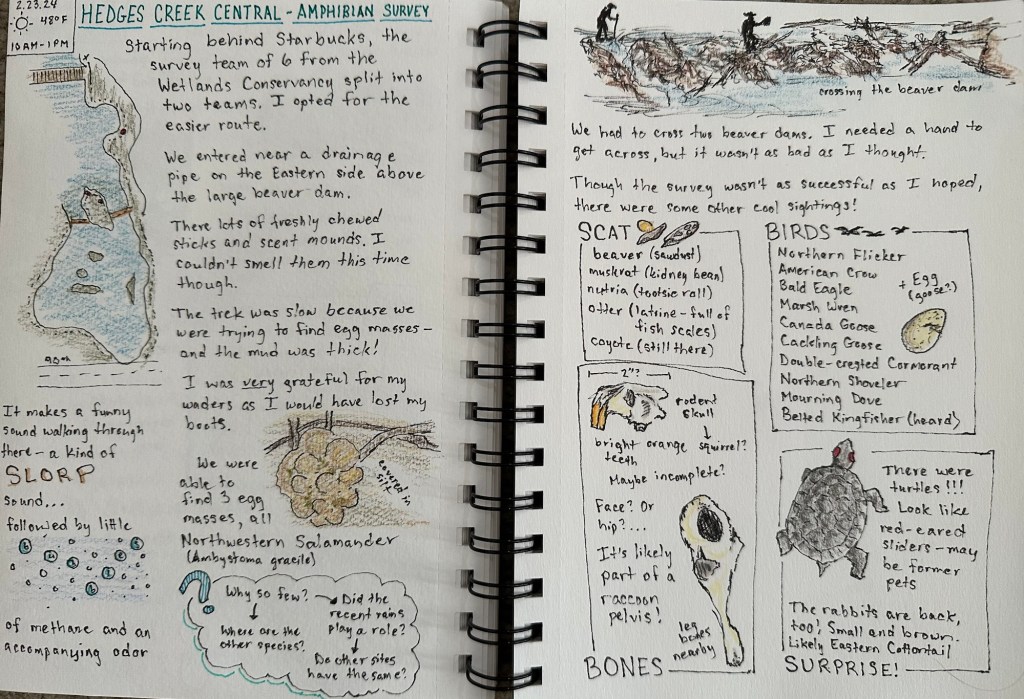 2.23.24
48°F
10AM-1PM
HEDGES CREEK CENTRAL - AMPHIBIAN SURVEY
Starting behind Starbucks, the
survey team of 6 from the
Wetlands Conservancy split into
two teams. I opted for the
easier route.
We entered near a drainage
pipe on the Eastern side above
the large beaver dam.
There lots of freshly chewed
sticks and scent mounds. I
couldn't smell them this time
though.
The trek was slow because we
were trying to find egg masses -
and the mud was thick!
I was very grateful for my
waders as I would have lost my
boots.
90th
It makes a funny
sound walking through
there - a kind of
SLORP
sound...
followed by little
of methane and an
accompanying odor
We were
able to
find 3 egg
masses, all
Northwestern Salamander
(Ambystoma gracile)
covered in
silt
?
Why so few?
Where are the
other species?
Did the
recent rains
play a role?
Do other sites
have the same?
crossing the beaver dam
We had to cross two beaver dams. I needed a hand to
get across, but it wasn't as bad as I thought.
Though the survey wasn't as successful as I hoped,
there were some other cool sightings!
SCAT
beaver (sawdust)
muskrat (kidney bean)
nutria (tootsie roll)
otter (latrine - full of
fish scales)
coyote (still there)
BIRDS
Northern Flicker
American Crow
Bald Eagle
Marsh Wren
Canada Goose
Cackling Goose
Double-crested Cormorant
Northern Shoveler
Mourning Dove
Belted Kingfisher (heard)
+ Egg
(goose?)
2"?
rodent
skull
squirrel?
bright orange
teeth
Maybe incomplete?
Face? Or
hip?...
It's likely
part of a
raccoon
pelvis!
leg
bones
nearby
BONES
There were
turtles!!!
Look like
red-eared
sliders - may
be former
pets
The rabbits are back,
too! Small and brown.
Likely Eastern Cottontail
SURPRISE!